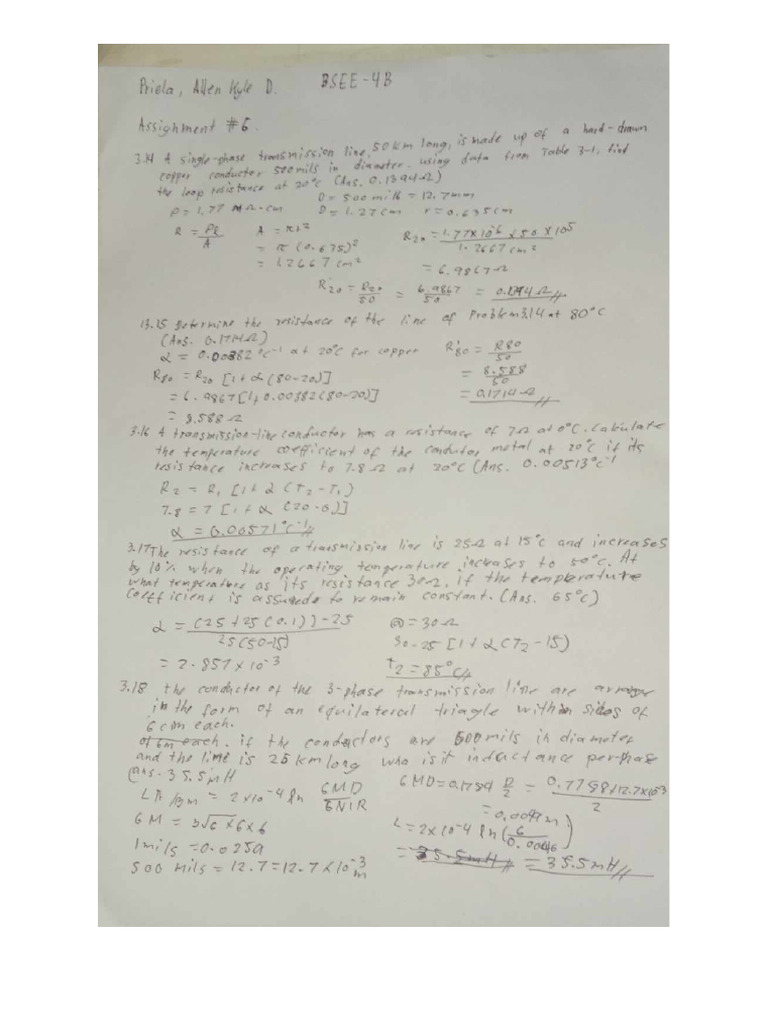 Priela, Allen Kyle D. BSEE-4B
Assignment #6.
3.14 A single-phase transmission line, 50 km long, is made up of a hard-drawn
copper conductor 500 mils in diameter. using data from Table 3-1, find
the loop resistance at 20°C (Ans. 0.1394Ω)
D = 500 mils = 12.7mm
ρ = 1.77 MΩ-cm D = 1.27cm r = 0.635cm
R = ρl/A A = πr²
= π(0.635)²
= 1.2667 cm²
R20 = 1.77×10⁻⁶ × 50 × 10⁵ / 1.2667 cm²
= 6.9867Ω
R'20 = R20/50 = 6.9867/50 = 0.1394Ω
13.15 Determine the resistance of the line of Problem 3.14 at 80°C
(Ans. 0.1714Ω)
α = 0.00382°C⁻¹ at 20°C for copper
R80 = R20 [1+α(80-20)]
= 6.9867[1+0.00382(80-20)]
= 8.588Ω
R'80 = R80/50
= 8.588/50
= 0.1714Ω
3.16 A transmission-line conductor has a resistance of 7Ω at 0°C. Calculate
the temperature coefficient of the condutor metal at 20°C if its
resistance increases to 7.8Ω at 20°C (Ans. 0.00513°C⁻¹
R2 = R1 [1+α(T2-T1)
7.8 = 7 [1+α(20-0)]
α = 0.00571°C⁻¹
3.17 The resistance of a transmission line is 25Ω at 15°C and increases
by 10% when the operating temperature increases to 50°C. At
what temperature as its resistance 30Ω, if the temperature
coefficient is assumed to remain constant. (Ans. 65°C)
α = (25+25(0.1))-25 / 25(50-15)
= 2.857×10⁻³
@ = 30Ω
30-25[1+α(T2-15)
T2 = 85°C
3.18 the conductor of the 3-phase transmission line are arrange
in the form of an equilateral triangle within sides of
6cm each.
of 6m each. if the conductors are 500 mils in diameter
and the line is 25 km long who is it inductance per-phase
(ans. 35.5mH
= 2×10⁻⁴ ln GMD
GM = 3√6×6×6
1 mils = 0.0254
500 mils = 12.7 = 12.7×10⁻³ m
= 0.7788/12.7×10⁻³ / 2
L = 2×10⁻⁴ ln(6/0.0046)
= 35.5mH = 35.5mH